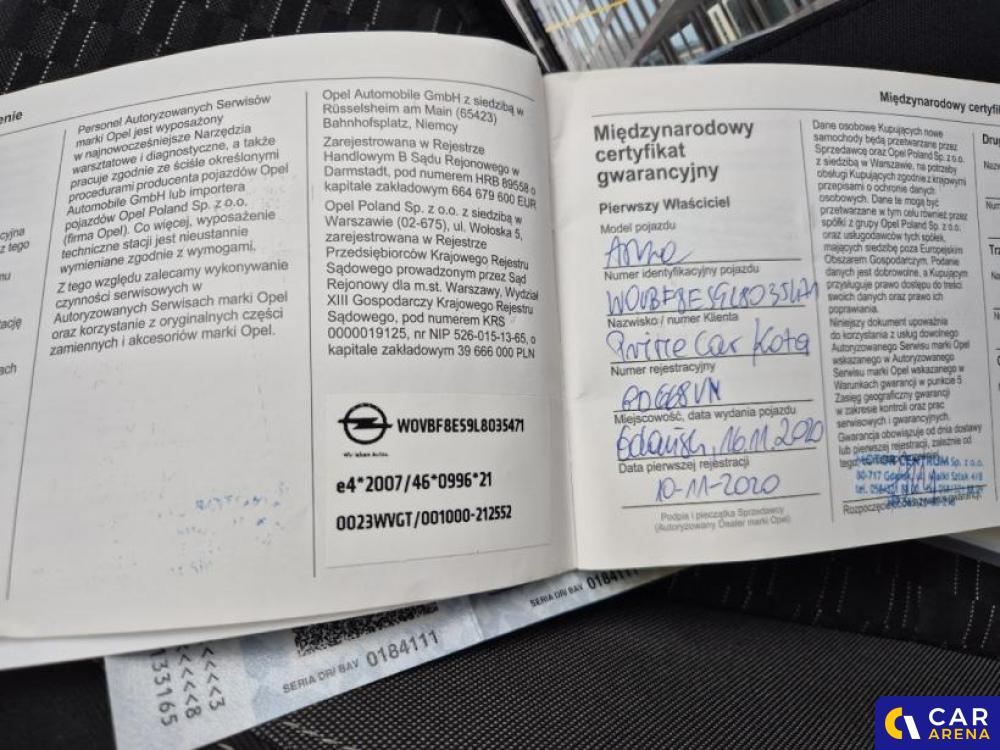 enie
cyjna
z tego
mu
tację
ach
Personel Autoryzowanych Serwisów
marki Opel jest wyposażony
w najnowocześniejsze Narzędzia
warsztatowe i diagnostyczne, a także
pracuje zgodnie ze ściśle określonymi
procedurami producenta pojazdów Opel
Automobile GmbH lub importera
pojazdów Opel Poland Sp. z o.o.
(firma Opel). Co więcej, wyposażenie
techniczne stacji jest nieustannie
wymieniane zgodnie z wymogami.
Z tego względu zalecamy wykonywanie
czynności serwisowych w
Autoryzowanych Serwisach marki Opel
oraz korzystanie z oryginalnych części
zamiennych i akcesoriów marki Opel.
Opel Automobile GmbH z siedzibą w
Rüsselsheim am Main (65423)
Bahnhofsplatz, Niemcy
Zarejestrowana w Rejestrze
Handlowym B Sądu Rejonowego w
Darmstadt, pod numerem HRB 89558 o
kapitale zakładowym 664 679 600 EUR
Opel Poland Sp. z o.o. z siedzibą w
Warszawie (02-675), ul. Wołoska 5,
zarejestrowana w Rejestrze
Przedsiębiorców Krajowego Rejestru
Sądowego prowadzonym przez Sąd
Rejonowy dla m.st. Warszawy, Wydział
XIII Gospodarczy Krajowego Rejestru
Sądowego, pod numerem KRS
0000019125, nr NIP 526-015-13-65, o
kapitale zakładowym 39 666 000 PLN
W0VBF8ES9L8035471
Wir leben Autos.
e4*2007/46*0996*21
0023WVGT/001000-212552
Międzynarodowy certyfi
Międzynarodowy
certyfikat
gwarancyjny
Pierwszy Właściciel
Model pojazdu
Numer identyfikacyjny pojazdu
W0VBF8ES9L8035471
Nazwisko / numer Klienta
Prime Car
Numer rejestracyjny
Miejscowość, data wydania pojazdu
Gdańsk, 16.11.2020
Data pierwszej rejestracji
10-11-2020
Podpis i pieczątka Sprzedawcy
(Autoryzowany Dealer marki Opel)
Dane osobowe Kupujących nowe
samochody będą przetwarzane przez
Sprzedawcę oraz Opel Poland Sp. z o.o.
z siedzibą w Warszawie, na potrzeby
obsługi Kupujących zgodnie z krajowymi
przepisami o ochronie danych
osobowych. Dane te mogą być
przetwarzane w tym celu również przez
spółki z grupy Opel Poland Sp. z o.o.
oraz usługodawców tych spółek,
mających siedzibę poza Europejskim
Obszarem Gospodarczym. Podanie
danych jest dobrowolne, a Kupującym
przysługuje prawo dostępu do treści
swoich danych oraz prawo ich
poprawiania.
Niniejszy dokument upoważnia
do korzystania z usług dowolnego
Autoryzowanego Serwisu marki Opel
wskazanego w Autoryzowanego
Serwisu marki Opel wskazanego w
Warunkach gwarancji w punkcie 5
Zasięg geograficzny gwarancji
w zakresie kontroli oraz prac
serwisowych i gwarancyjnych.
Gwarancja obowiązuje od dnia dostawy
lub pierwszej rejestracji, zależnie od
tego
MOTOR CENTRUM Sp. z o.o.
80-717 Gdańsk, ul. Wałki Szlak 4/8
Rozpoczęcie
Dru
Naz
SERIA DR/ BAV 0184111
SERIA DR/ BAV 018411
<<<<<3
<<<<<8
133165
CAR
ARENA